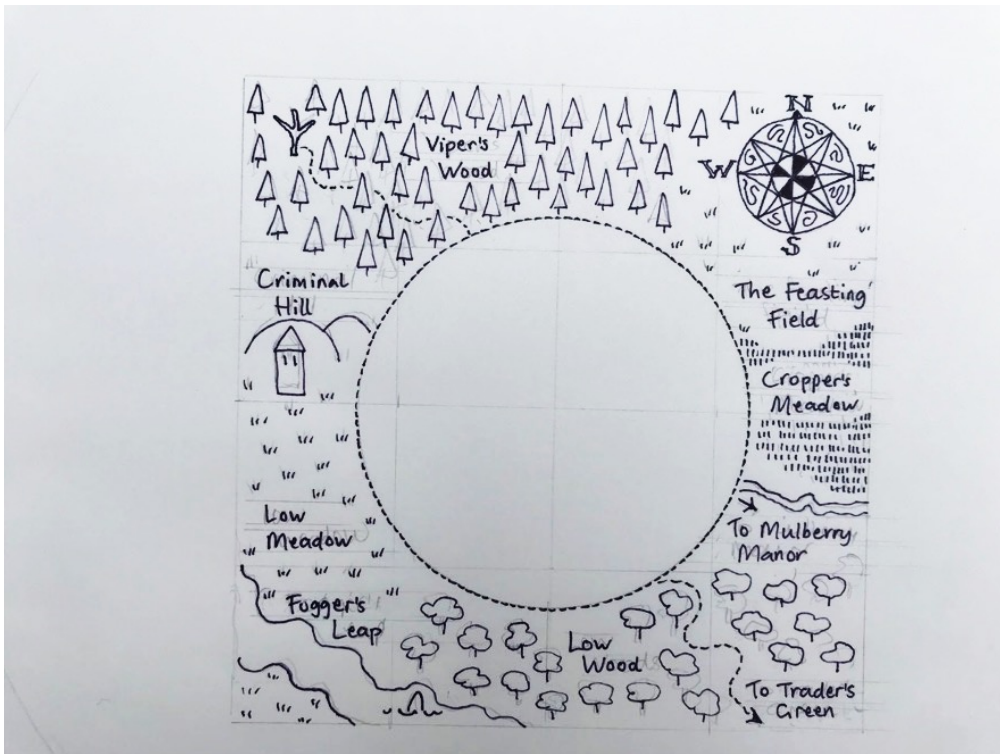 Viper's
Wood
N
W
E
S
Criminal
Hill
The Feasting
Field
Cropper's
Meadow
Low
Meadow
To Mulberry
Manor
Fugger's
Leap
Low
Wood
To Trader's
Green